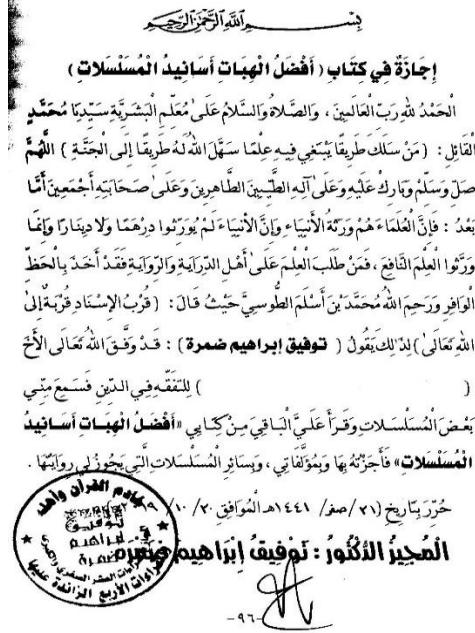 بِسْمِ اللَّهِ الرَّحْمَنِ الرَّحِيمِ
إِجَازَةٌ فِي كِتَابِ ( أَفْضَلُ الْهِبَاتِ أَسَانِيدُ الْمُسَلْسَلَاتِ )
الْحَمْدُ للهِ رَبِّ الْعَالَمِينَ ، وَالصَّلَاةُ وَالسَّلَامُ عَلَىٰ مُعَلِّمِ الْبَشَرِيَّةِ سَيِّدِنَا مُحَمَّدٍ
القَائِلِ : ( مَنْ سَلَكَ طَرِيقًا يَبْتَغِي فِيهِ عِلْمًا سَهَّلَ اللهُ لَهُ طَرِيقًا إِلَى الْجَنَّةِ ) اللَّهُمَّ
صَلِّ وَسَلِّمْ وَبَارِكْ عَلَيْهِ وَعَلَىٰ آلِهِ الطَّيِّبِينَ الطَّاهِرِينَ وَعَلَىٰ صَحَابَتِهِ أَجْمَعِينَ أَمَّا
بَعْدُ : فَإِنَّ الْعُلَمَاءَ هُمْ وَرَثَةُ الأَنْبِيَاءِ وَإِنَّ الأَنْبِيَاءَ لَمْ يُوَرِّثُوا دِرْهَمًا وَلَا دِينَارًا وَإِنَّمَا
وَرَّثُوا الْعِلْمَ النَّافِعَ ، فَمَنْ طَلَبَ الْعِلْمَ عَلَىٰ أَهْلِ الدِّرَايَةِ وَالرِّوَايَةِ فَقَدْ أَخَذَ بِالْحَظِّ
الْوَافِرِ وَرَحِمَ اللهُ مُحَمَّدَ بْنَ أَسْلَمَ الطُّوسِيَّ حَيْثُ قَالَ : ( قُرْبُ الإِسْنَادِ قُرْبَةٌ إِلَىٰ
اللهِ تَعَالَىٰ ) لِذَٰلِكَ يَقُولُ ( توفيق إبراهيم ضمرة ) : قَدْ وَفَّقَ اللهُ تَعَالَى الأَخَ
( ) لِلتَّفَقُّهِ فِي الدِّينِ فَسَمِعَ مِنِّي
بَعْضَ الْمُسَلْسَلَاتِ وَقَرَأَ عَلَيَّ الْبَاقِيَ مِنْ كِتَابِي «أَفْضَلُ الْهِبَاتِ أَسَانِيدُ
الْمُسَلْسَلَاتِ» فَأَجَزْتُهُ بِهَا وَبِمُؤَلَّفَاتِي ، وَبِسَائِرِ الْمُسَلْسَلَاتِ الَّتِي يَجُوزُ لِي رِوَايَتُهَا .
حُرِّرَ بِتَارِيخِ (٢١/ صفر/ ١٤٤١هـ الْمُوَافِقِ ٢٠/ ١٠/
الْمُجِيزُ الدُّكْتُورُ : تَوْفِيقُ إِبْرَاهِيمَ ضَمْرَة
خادم القرآن وأهله
توفيق
إبراهيم
ضمرة
بالقراءات العشر الصغرى والكبرى
والقراءات الأربع الزائدة عليها
-٩٦-